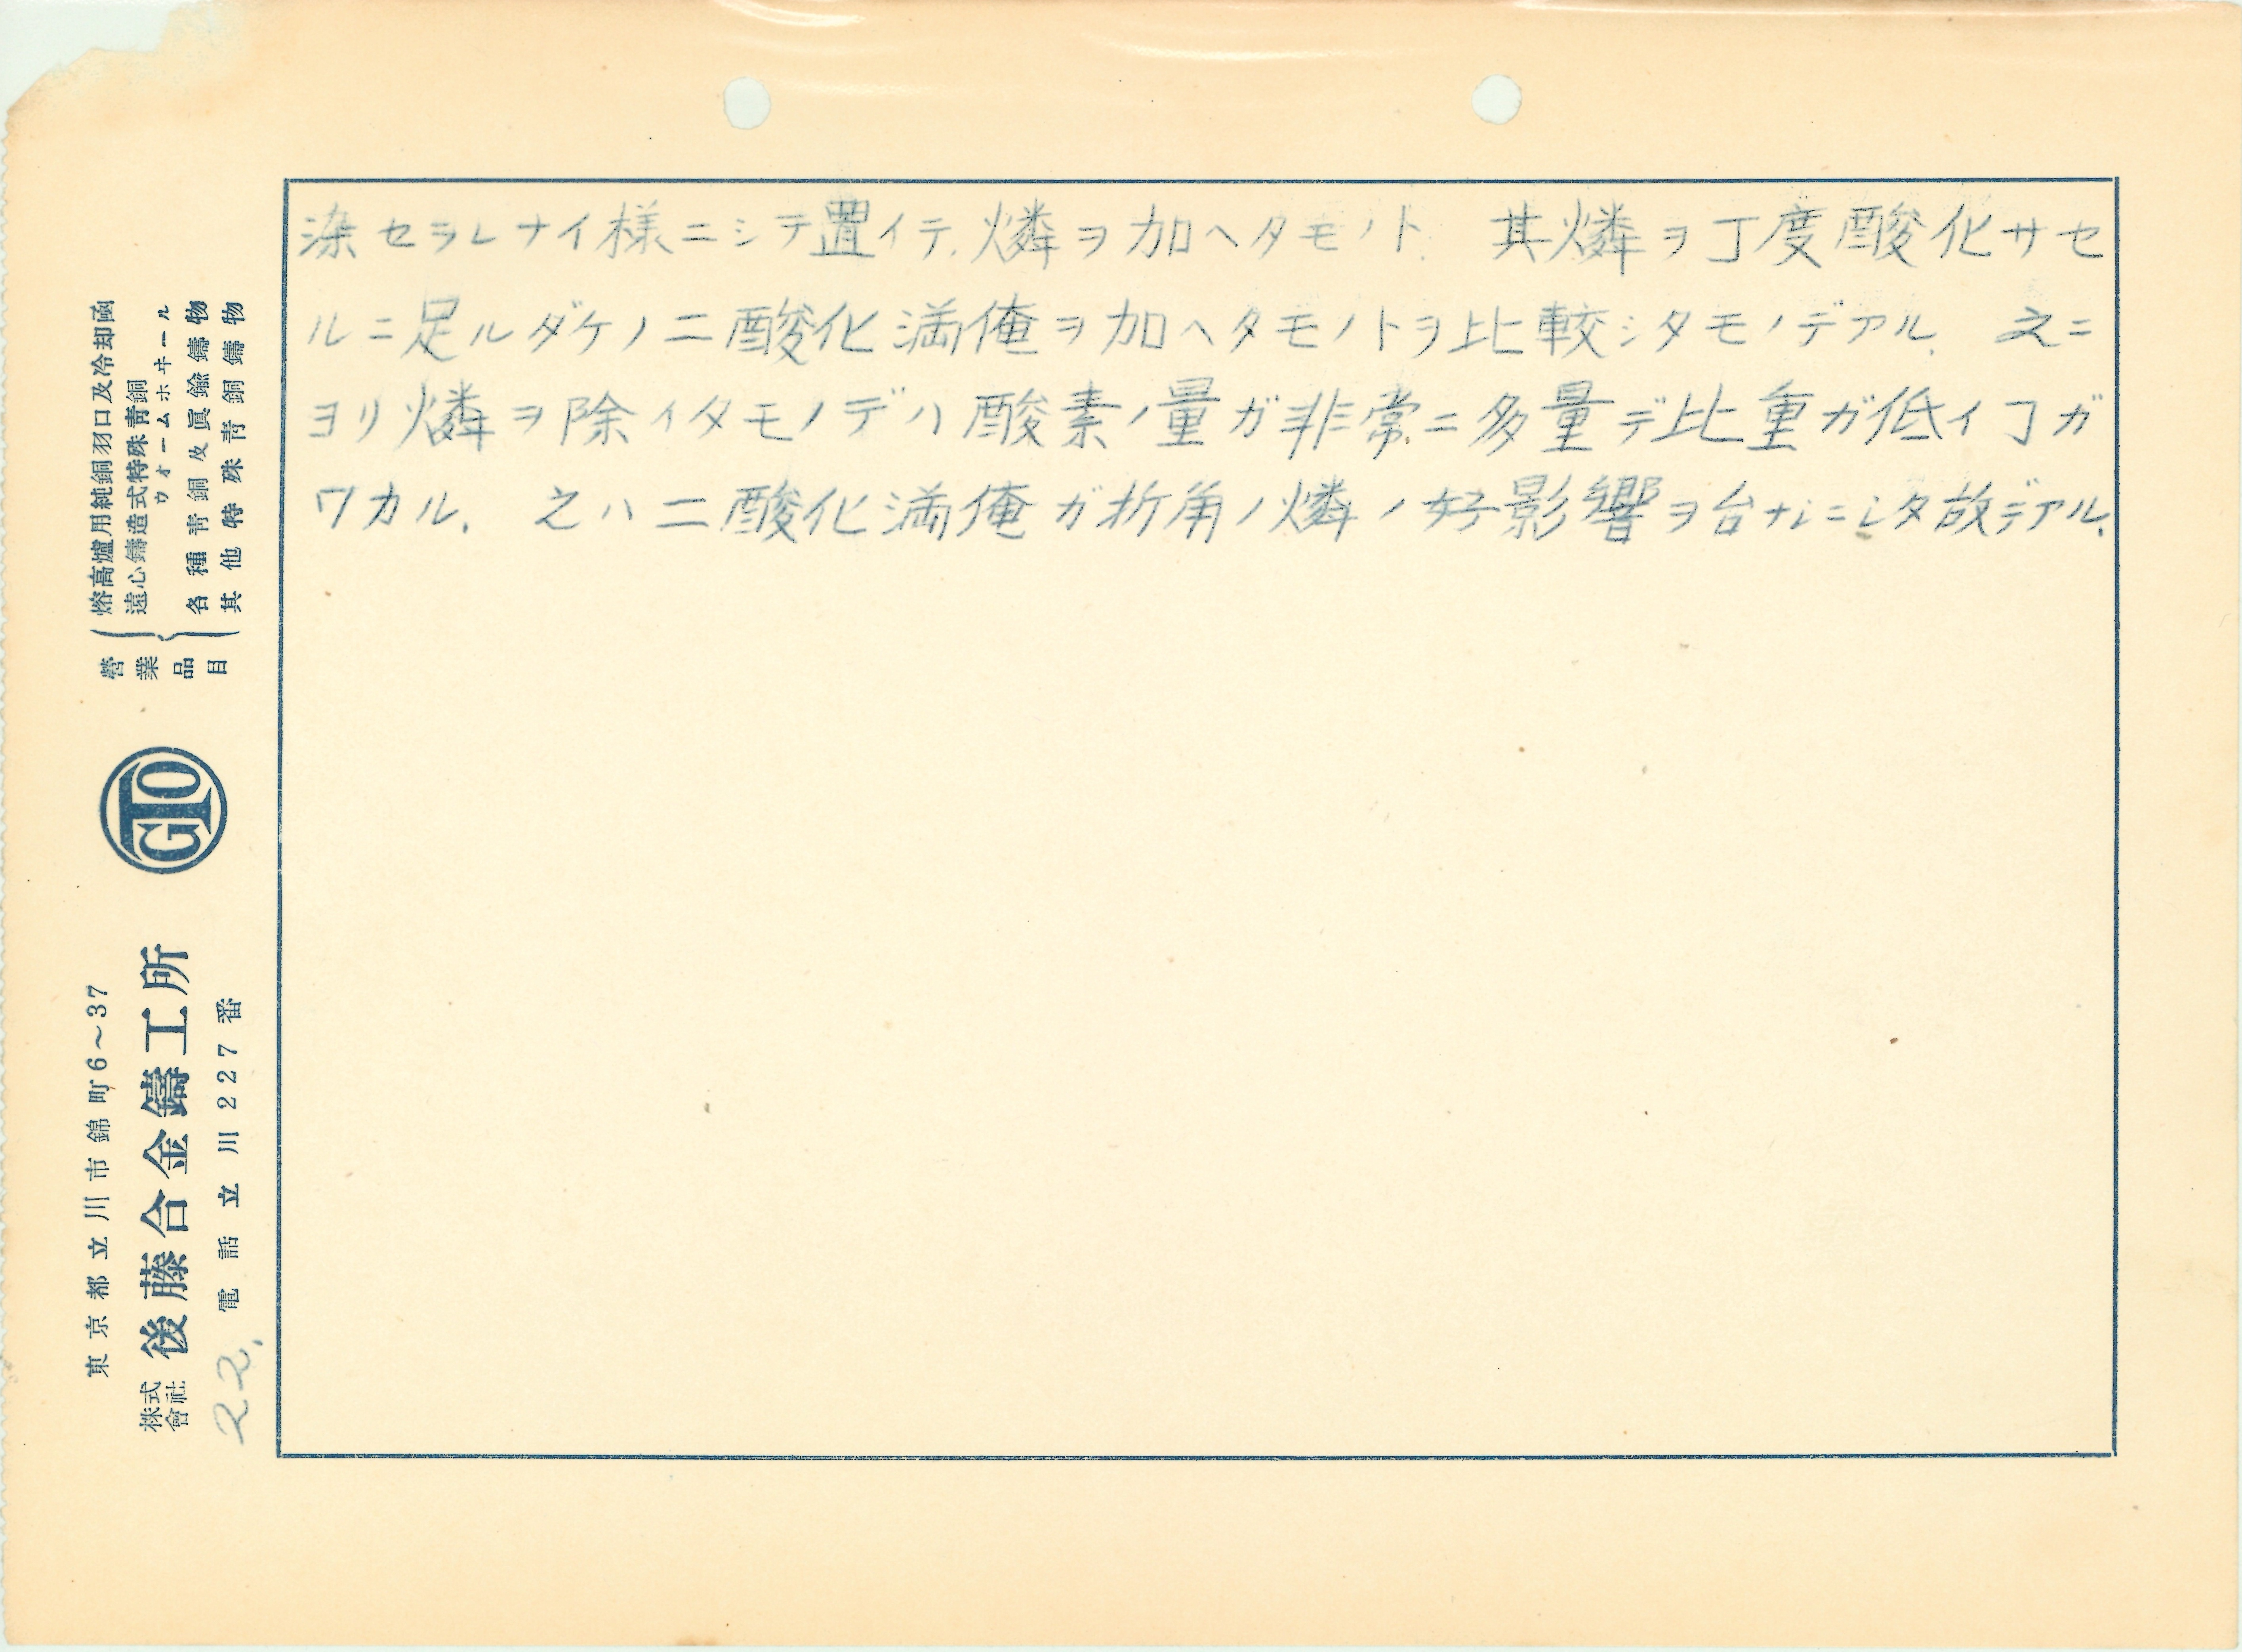 染セラレナイ様ニシテ置イテ.燐ヲ加ヘタモノト. 其燐ヲ丁度酸化サセ
ルニ足ルダケノ二酸化満俺ヲ加ヘタモノトヲ比較シタモノデアル. 之ニ
ヨリ燐ヲ除イタモノデハ酸素ノ量ガ非常ニ多量デ比重ガ低イヿガ
ワカル. 之ハ二酸化満俺ガ折角ノ燐ノ好影響ヲ台ナシニシタ故デアル.
東京都立川市錦町6〜37
株式會社 後藤合金鑄工所
電話立川227番
GTO
營業品目
熔高爐用純銅羽口及冷却凾
遠心鑄造式特殊靑銅
ウォームホヰール
各種靑銅及眞鍮鑄物
其他特殊靑銅鑄物
22.